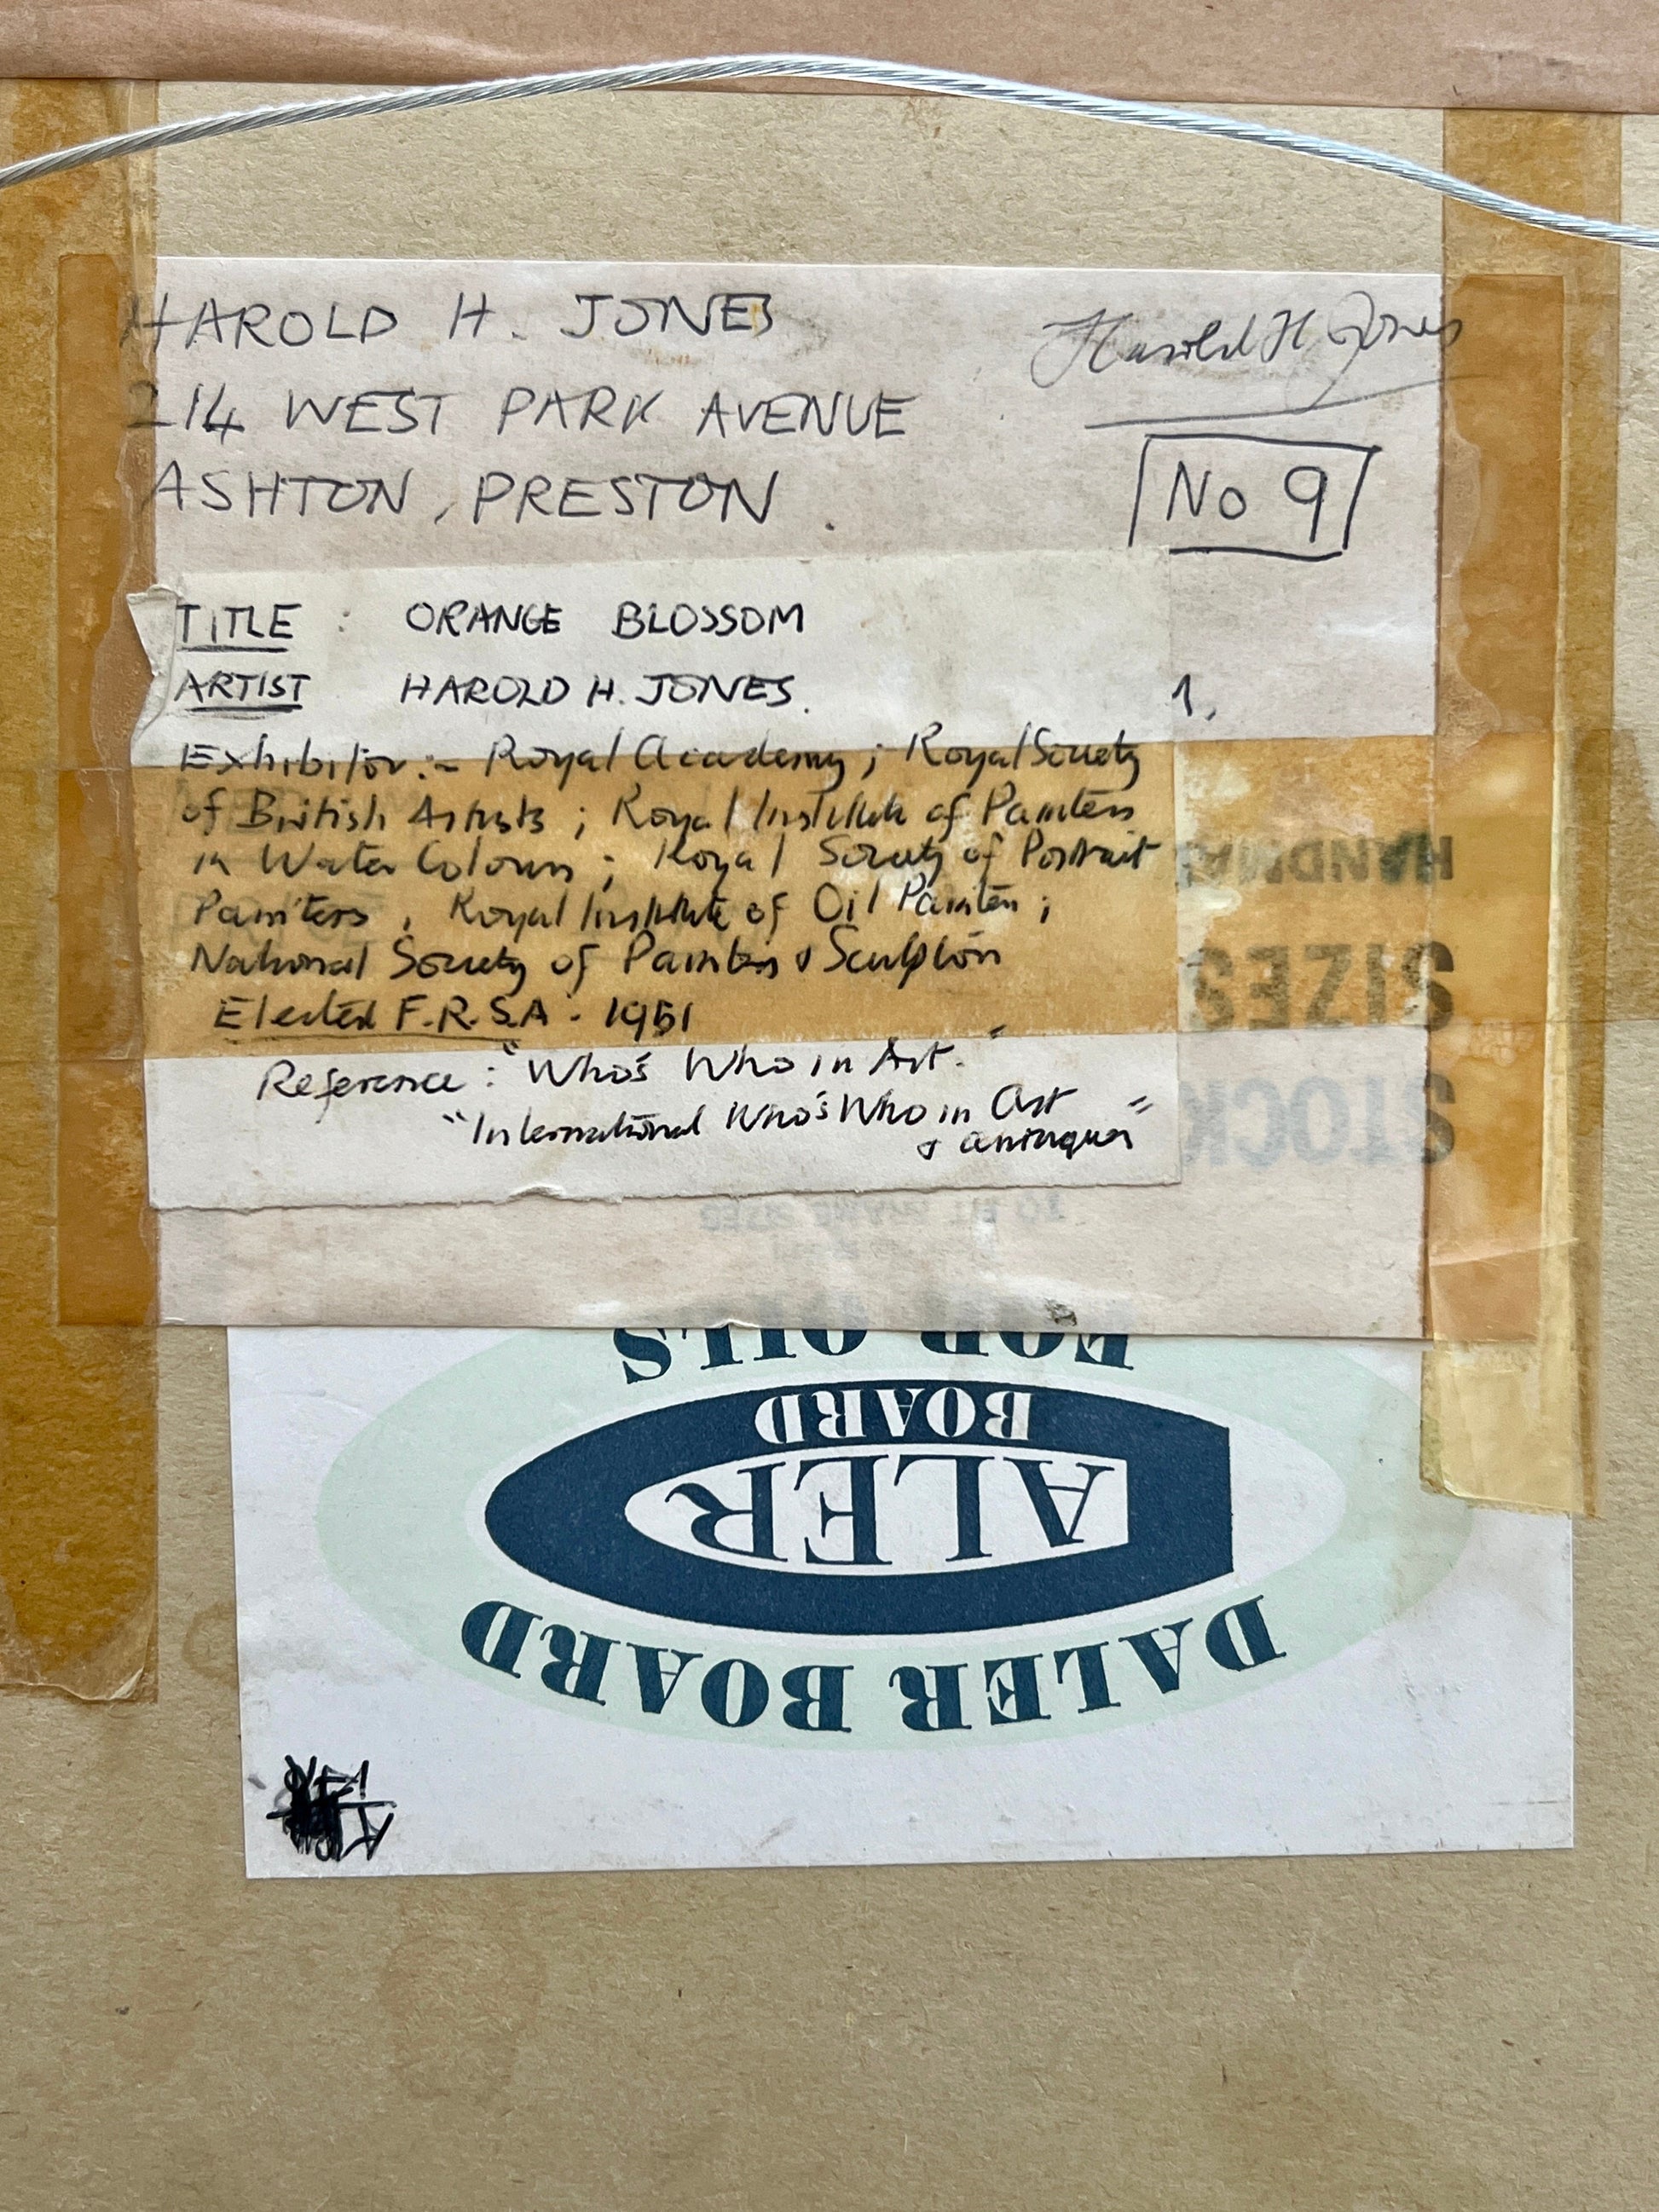 HAROLD H. JONES
Harold H Jones
214 WEST PARK AVENUE
ASHTON, PRESTON.
No 9
TITLE : ORANGE BLOSSOM
ARTIST HAROLD H. JONES.
1.
Exhibitor:- Royal Academy; Royal Society
of British Artists; Royal Institute of Painters
in Water Colours; Royal Society of Portrait
Painters, Royal Institute of Oil Painters;
National Society of Painters & Sculptors
Elected F.R.S.A - 1951
Reference: "Who's Who in Art."
"International Who's Who in Art
& antiques"
SIZES
STOCK
FOR OILS
BOARD
ALER
DALER BOARD